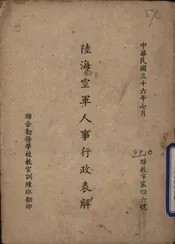 中華民國三十六年七月
聯教字第四六號
陸海空軍人事行政表解
聯合勤務學校教官訓練班翻印